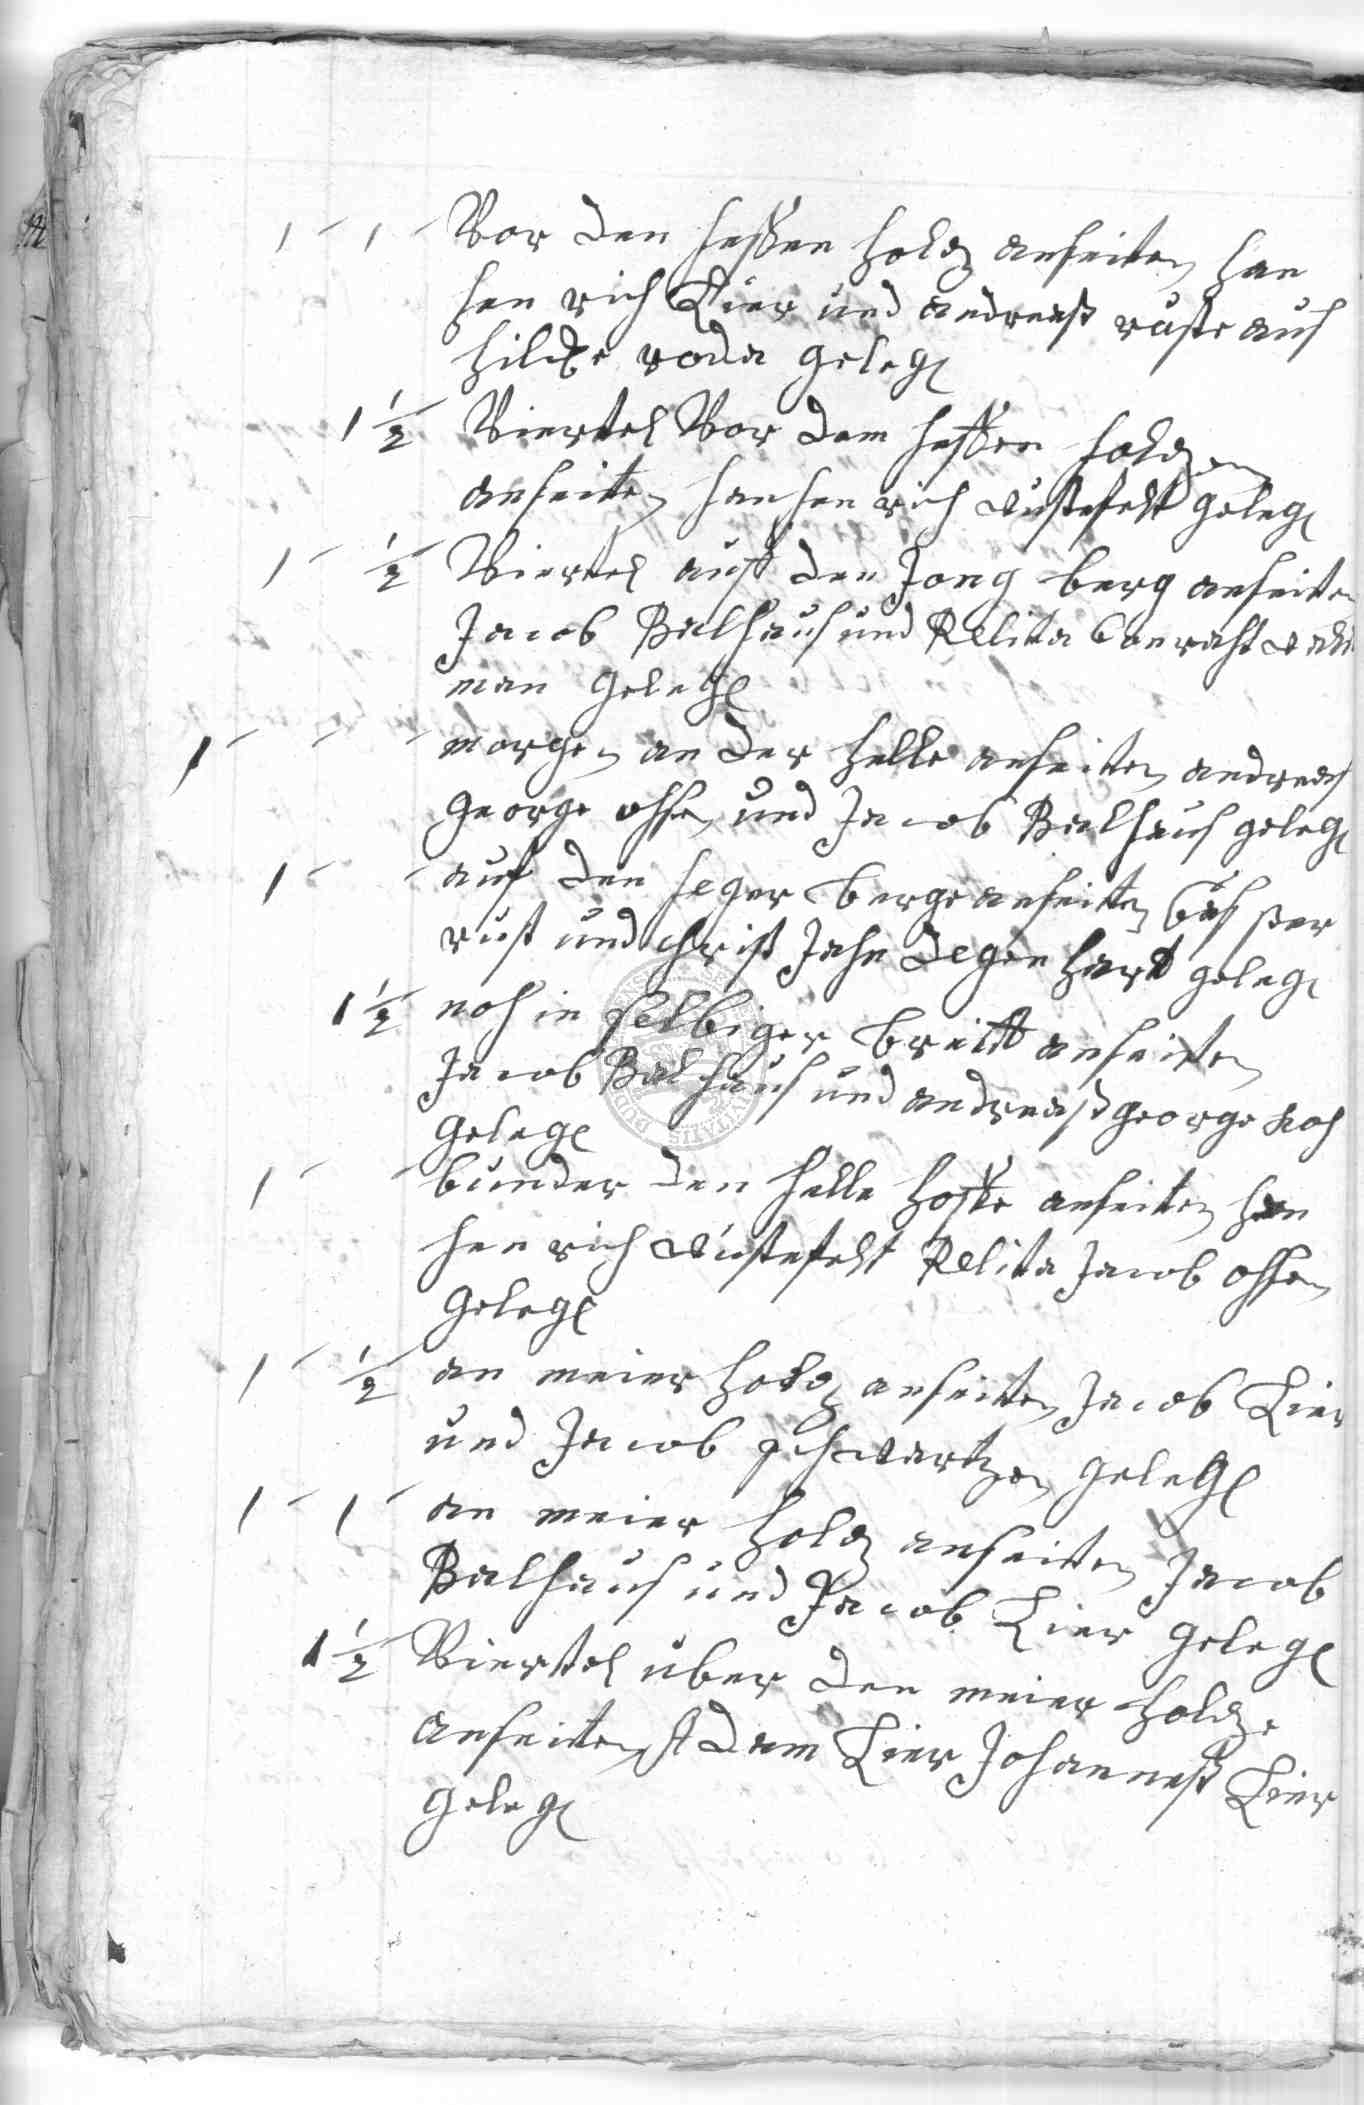 1 - 1 - Vor den hessen holtz anseiten han
hen rich Lier und andreaß ruste auf
hilcke roda geleg
1 1/2 Viertel Vor dem hessen holtzen
anseiten han hen rich Wustefelt geleg
1 - 1/2 Viertel auf den Jong berg anseiten
Jacob Balhauß und Relita Conraht
man gelegl
1 - - - morgen an der helle anseiten andreas
George ohse und Jacob Balhauß geleg
1 - - auf den heger berge anseiten
rust und christ Jahn Degen Hart geleg
1 1/2 noch in selbiger breitt anseiten
Jacob Balhauß und andreaß George Koch
gelegl
1 - - bunder den helle hoffe anseiten han
hen rich Wustefelt Relita Jacob ohsen
gelegl
1 - 1/2 an meier holtz anseiten Jacob Lier
und Jacob schwartzen gelegl
1 - 1 - an meier holtz anseiten Jacob
Balhauß und Jacob Lier gelegl
1 1/2 Viertel uber den meier holtze
anseiten Adam Lier Johanneß Lier
geleg